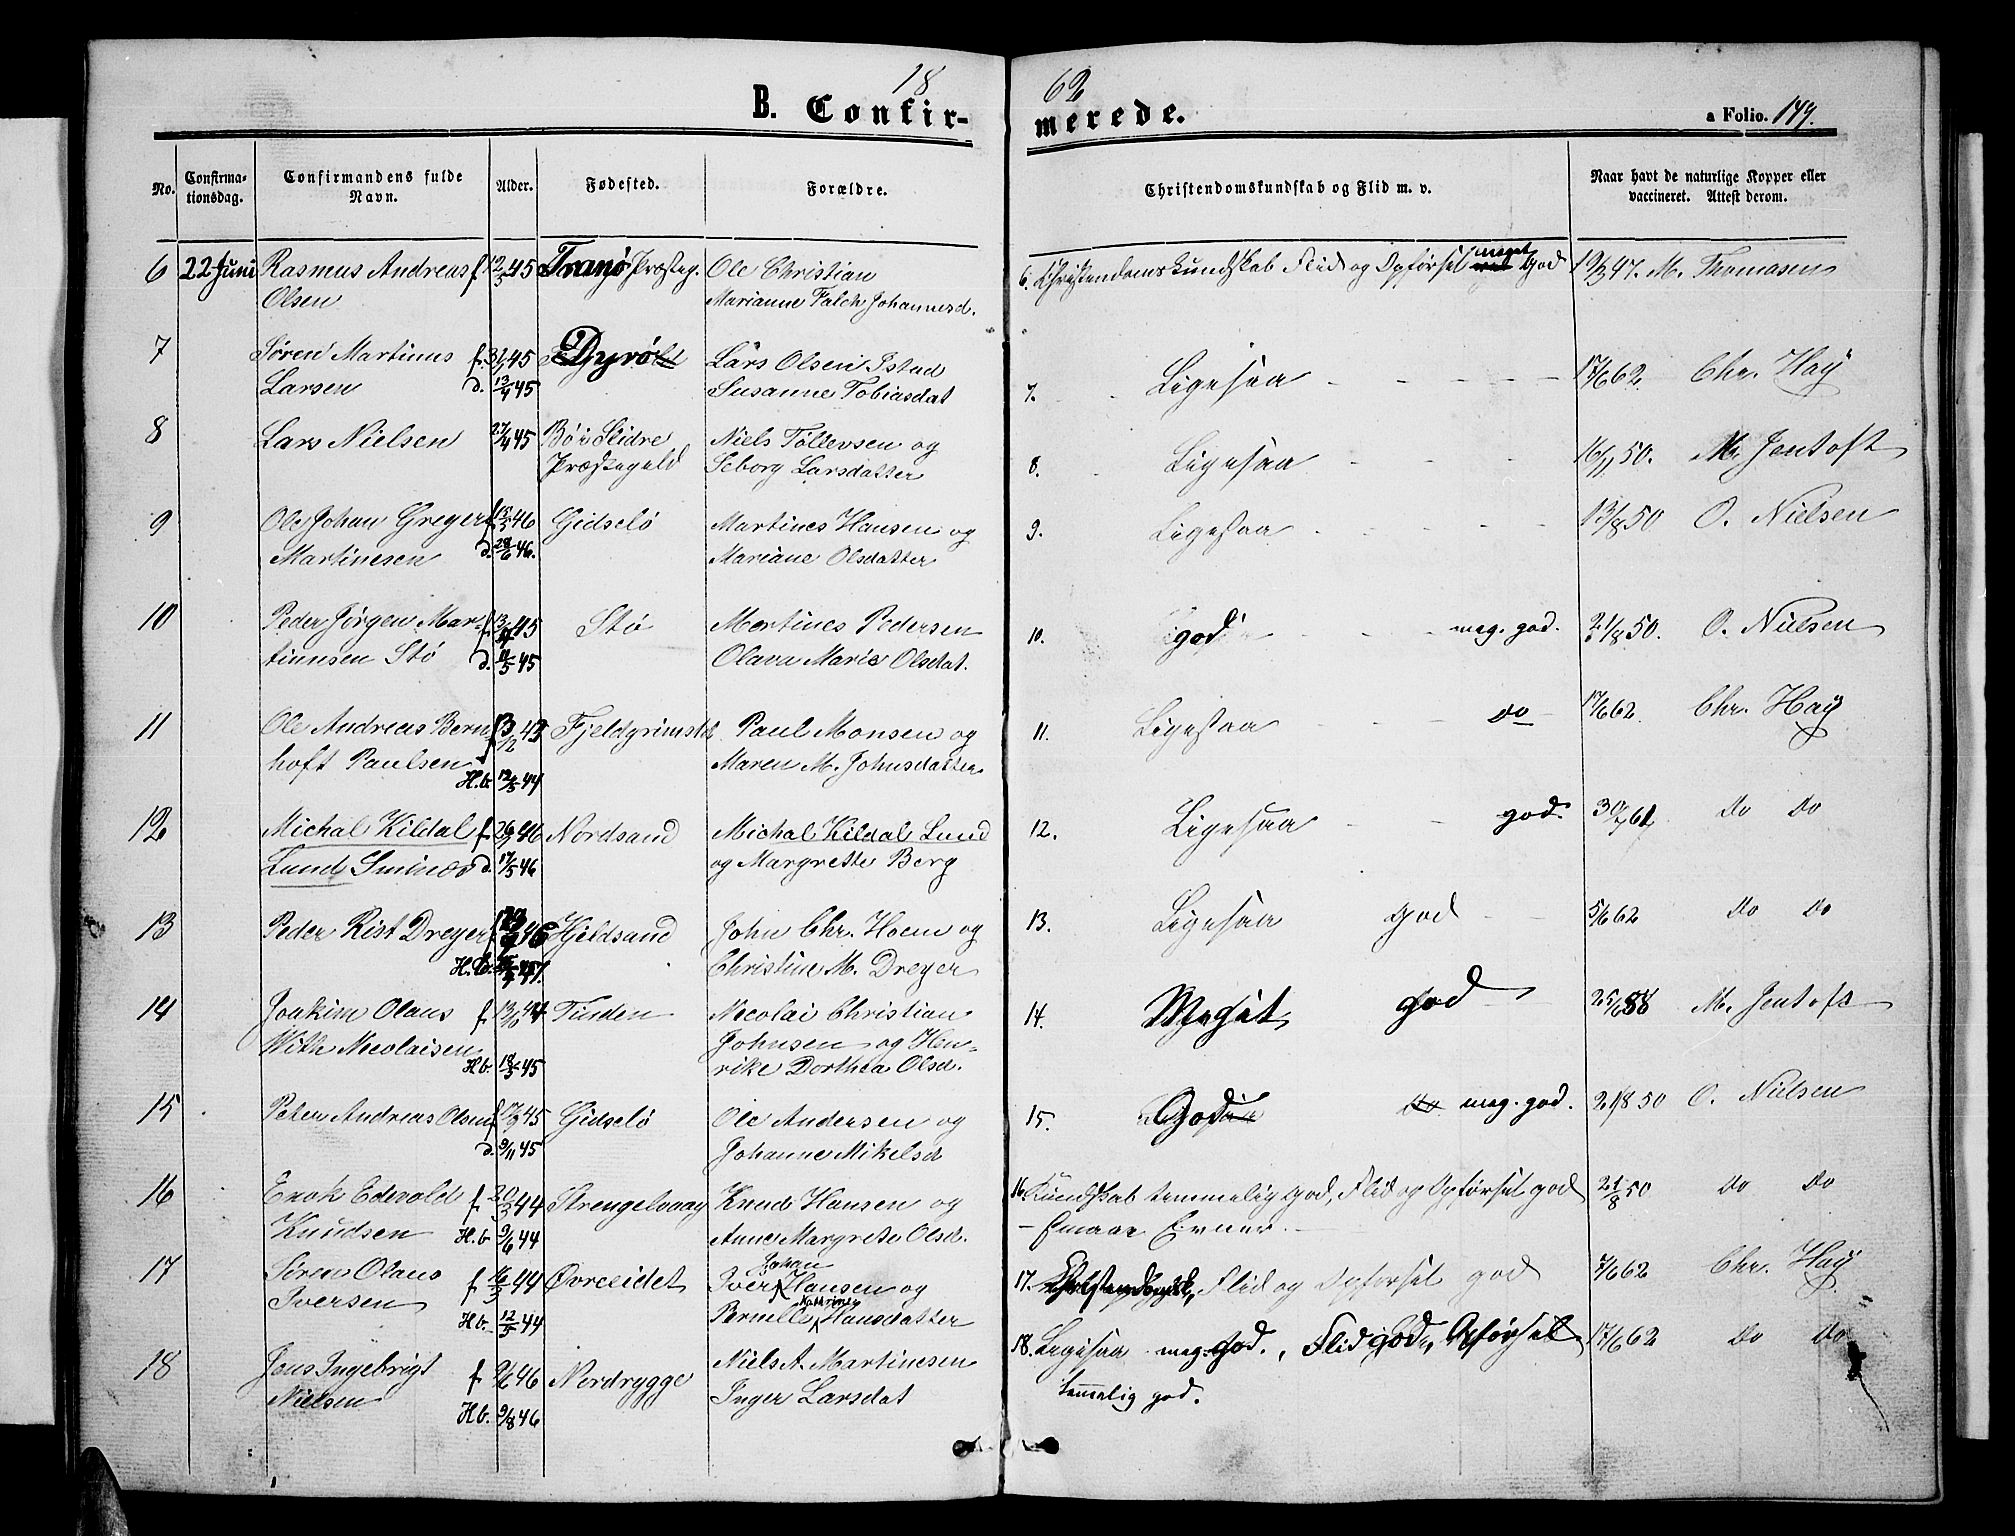 18 62
B. Confirmerede.
a Folio. 149.
No. Confirmationsdag. Confirmandens fulde Navn. Alder. Fødested. Forældre. Christendomskundskab og Flid m. v. Naar havt de naturlige Kopper eller vaccineret. Attest derom.
6 22 Juni Rasmus Andreas f. 12/3 45 Tranø Præsteg. Ole Christian 6. Christendomskundskab Flid og Opførsel meget God 19/3 47. M. Thomasen
Olsen Marianne Falch Johannesd.
7 Søren Martinus f. 3/1 45 Dyrø Lars Olsen Istad 7. Ligesaa 17/6 62 Chr. Høy
Larsen d. 13/4 45 Susanne Tobiasdat
8 Lars Nielsen 27/4 45 Bøi Slidre Niels Tollevsen og 8. Ligesaa 16/11 50. M. Jentoft
Præstegeld Seborg Larsdatter
9 Ole Johan Greger f. 15/3 46 Gidselö Martines Hansen og 9. Ligesaa 13/8 50 O. Nielsen
Martinesen d. 28/6 46. Mariane Olsdatter
10 Peder Jørgen Mar- f. 13/4 45 Stö Martines Pedersen 10. god meg. god. 21/8 50. O. Nielsen
tinnsen Stö d. 11/5 45 Olava Marie Olsdat.
11 Ole Andreas Bern f. 13/12 43 Fjeldgrimstd Paul Monsen og 11. Ligesaa do 17/6 62. Chr. Høy
hoft Paulsen H.b. 12/5 44 Maren M. Johnsdatter
12 Michal Kildal f. 26/3 46 Nordsand Michal Kildal Lund 12. Ligesaa god. 30/7 61 Do Do
Lund Sminæs d. 17/5 46 og Margrette Berg
13 Peder Rist Dreyer f. 46 Hjeldsand John Chr. Hoem og 13. Ligesaa god 5/6 62 Do Do
H.b. 47. Christine M. Dreyer
14 Joakim Olaus f. 13/10 44 Tinden Necolai Christian 14. Meget god 25/6 58 M. Jentoft
With Necolaisen H.b. 18/5 45 Johnsen og Hen-
rike Dorthea Olsd.
15 Peter Andreas Olsen f. 17/9 45 Gidselö Ole Andersen og 15. God do meg. god. 21/8 50 O. Nielsen
d. 9/11 45 Johanne Mikelsd
16 Enok Edevold f. 20/3 44 Strengelvaag Knud Hansen og 16. Kundskab temmelig god, Flid og Opførsel god 21/8 50 Do Do
Knudsen H.b. 9/6 44 Anne Margrete Olsd. - Smaae Evner. -
17 Søren Olaus f. 16/3 44 Øvreeidet Iver Johan Hansen og 17. Christendomsk, Flid og Opførsel god 7/6 62 Chr. Høy
Iversen H.b. 12/5 44 Pernille Kathrine Hansdatter
18 Jens Ingebrigt f. 2/6 46 Nordrygge Niels A. Martinesen 18. Ligesaa meg. god., Flid god, Opførsel 17/6 62 Do Do
Nielsen H.b. 9/8 46 Inger Larsdat temmelig god.